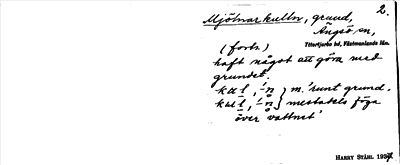 2.
Mjölnarkullen, grund,
Ängsö sn,
Yttertjurbo hd, Västmanlands län.
(forts.)
haft något att göra med
grundet.
kul, -n } m. 'runt grund.
kul, -n } mestadels föga
över vattnet'
HARRY STÅHL 193